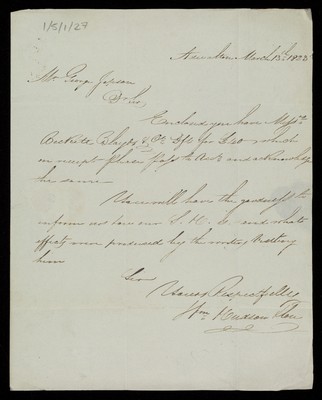 1/5/1/27
March 13th 1822
Mr George Jepson
Sir,
Enclosed you have Messrs
Beckett, Blayds & Co Dft for £40 which
on receipt please pass to Acct and acknowledge
the same -
You will have the goodness to
inform us how our
effects were produced by the
him
Your
Respectfully
Wm Hudson